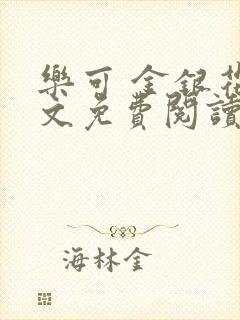 樂可 金銀花
文免費閱讀
海林金